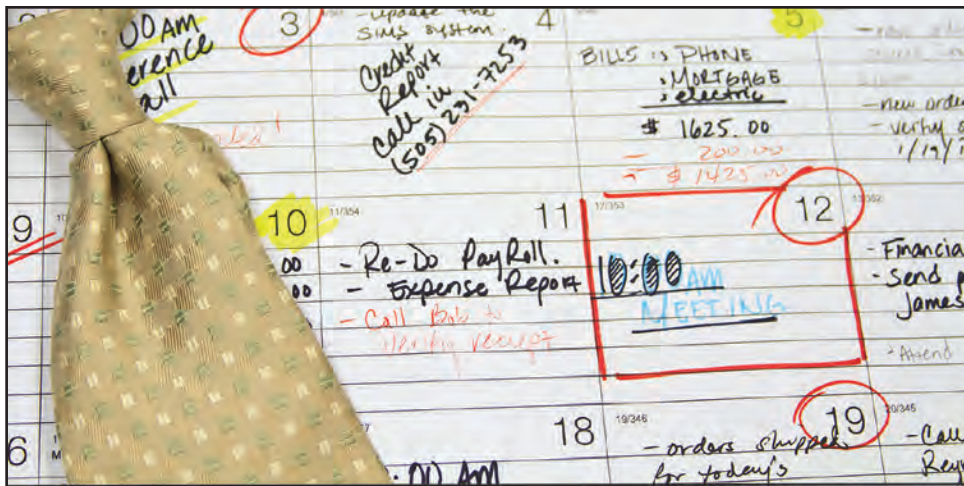 3
00 AM
erence
all
4
- update the
SIMS system.
Credit
Report
Call in
(505) 231-7253
5
BILLS is PHONE
MORTGAGE
electric
$ 1625.00
- 200.00
$ 1425.00
- new order
- verify
1/19/1
9
10
11/354
00
00
11
- Re-Do PayRoll.
- Expense Report
- Call Bob to
verify receipt
12
10:00 AM
MEETING
- Financia
- Send p
James
Attend
6
M
:00 AM
18
19/346
- orders shipped
for today's
19
20/345
- Call
Rey